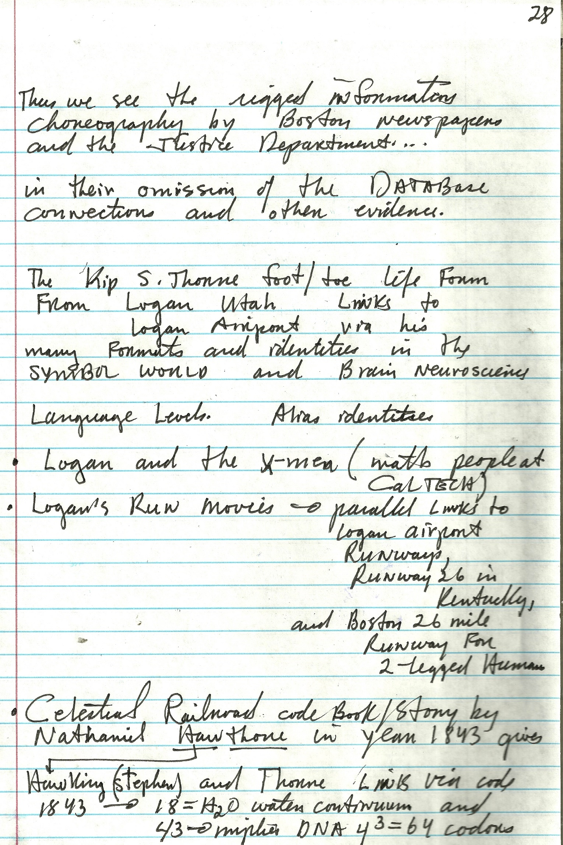 28
Thus we see the rigged information
choreography by Boston newspapers
and the Justice Department....
in their omission of the DATABase
connections and other evidence.
The Kip S. Thorne foot/toe life Form
From Logan Utah Links to
Logan Airport via his
many Formats and identities in the
SYMBOL WORLD and Brain Neuroscience
Language Levels. Alias identities
• Logan and the X-men (math people at
CalTECH)
• Logan's Run movies → parallel Links to
Logan airport
Runways,
Runway 26 in
Kentucky,
and Boston 26 mile
Runway For
2-legged Human
• Celestial Railroad code Book/Story by
Nathaniel Hawthorne in year 1843 gives
HawKing (Stephen) and Thorne Links via code
1843 → 18 = H2O water continuum and
43 → implies DNA 4³ = 64 codons